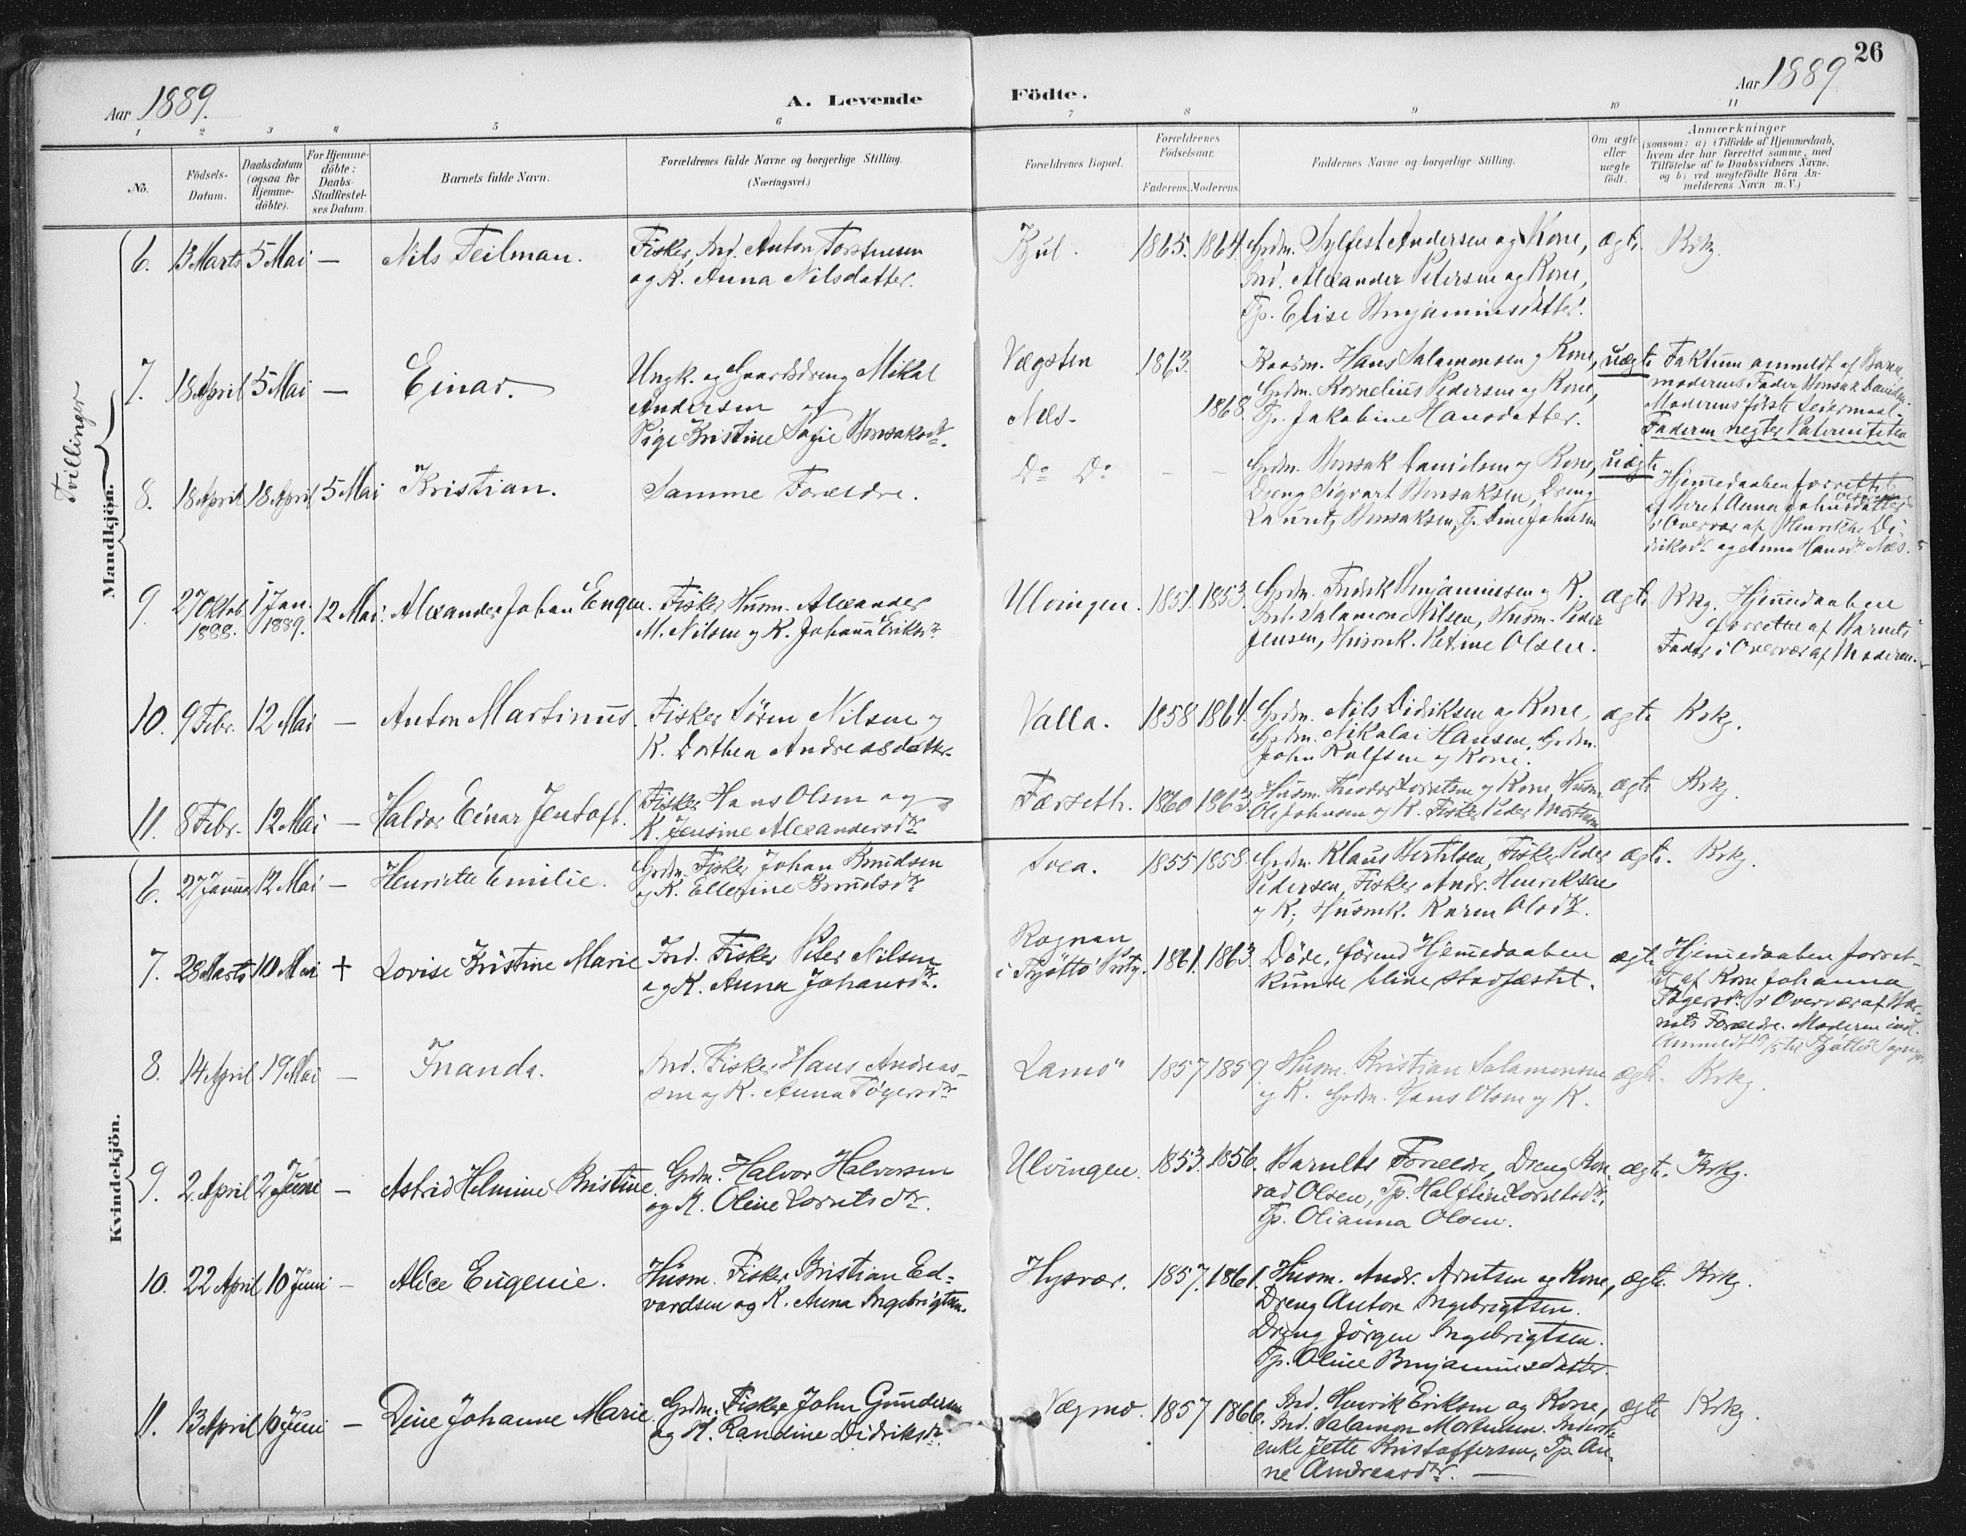 26
Aar 1889.
A. Levende Födte.
Aar 1889
1 2 3 4 5 6 7 8 9 10 11
No.
Födsels-Datum.
Daabsdatum (ogsaa for Hjemme-döbte).
For Hjemme-döbte: Daabs-Stadfæstel-ses Datum.
Barnets fulde Navn.
Forældrenes fulde Navne og borgerlige Stilling. (Næringsvei.)
Forældrenes Bopæl.
Forældrenes Födselsaar.
Faderens. Moderens.
Faddernes Navne og borgerlige Stilling.
Om ægte eller uægte födt.
Anmærkninger
(saasom: a) i Tilfælde af Hjemmedaab, hvem der har forrettet samme, med Tilföielse af to Daabsvidners Navne, og b) ved uægtefödte Börn An-melderens Navn m. V.)
Mandkjön.
6. 13 Marts 5 Mai — Nils Teilman. Fisker, Ind. Anton Torstensen
og K. Anna Nilsdatter.
1865. 1864. Grdm. Sylfest Andersen og Kone,
Ind. Alexander Petersen og Kone,
Tp. Elise Benjaminsdatter.
ægte. Krkg.
Tvillinger
7. 18 April 5 Mai — Einar. Ungk. og Gaardsdreng Mikal
Andersen og
Pige Kristine Sofie Bonsaksdtr.
Vægsten 1863.
Næs- 1868.
Hans Salamonsen og Kone,
Grdm. Kornelius Pedersen og Kone,
Tp. Jakobine Hansdatter.
uægte Faktum anmeldt af Barne
moderens Fader Bonsak Danielsen.
Moderens förste Leiermaal.
Faderen negter Paterniteten
8. 18 April 18 April 5 Mai Kristian. Samme Forældre.
Do Do — —
Grdm. Bonsak Danielsen og Kone,
Dreng Sigvart Bonsaksen, Dreng
Laurits Bonsaksen, Tp. Dine Johnsen
uægte Hjemmedaaben forrettet
af Beret Anna Johnsdatter
i Overvær af Henrikke Di-
driksdtr og Anna Hansdtr Næs.
9. 27 Oktob. 1888. 1 Jan. 1889. 12 Mai. Alexander Johan Engen. Fisker Husm. Alexander
M. Nilsen og K. Johanna Eriksdtr.
Ulvingen. 1851. 1853. Grdm. Fredrik Benjaminsen og K.
Ind. Salamon Nilsen, Husm. Peder
Jensen, Husmk. Petrine Olsen.
ægte. Krkg. Hjemmedaaben
forrettet af Barnets
Fader i Overvær af Moderen.
10. 9 Febr. 12 Mai — Anton Martinus. Fisker Sören Nilsen og
K. Dorthea Andreasdatter.
Valla. 1858 1864. Grdm. Nils Didriksen og Kone,
Grdm. Nikolai Hansen, Grdm.
John Rolfsen og Kone.
ægte Krkg.
11. 8 Febr. 12 Mai — Haldor Einar Jentoft. Fisker Hans Olsen og
K. Jensine Alexandersdtr
Færseth. 1860 1863. Husm. Theodor Lorntsen og Kone, Husm
Ole Johnsen og K. Fisker Peder Mortensen
ægte Krkg.
Kvindekjön.
6. 27 Januar 12 Mai — Henriette Emilie. Grdm. Fisker Johan Knudsen
og K. Ellefine Knudsdtr
Svea. 1855 1858. Grdm. Klaus Bertilsen, Fisker Peder
Pedersen, Fisker Andr. Henriksen
og K., Husmk. Karen Olsdtr.
ægte. Krkg.
7. 28 Marts 10 Mai + Lovise Kristine Marie Ind. Fisker Peter Nilsen
og K. Anna Johansdtr.
Rognan
i Tjöttö Prstg. 1861. 1863. Döde, förend Hjemmedaaben
kunde blive stadfæstet.
ægte. Hjemmedaaben forret-
tet af Kone Johanna
Tögersdtr i Overvær af Bar-
nets Forældre. Moderen indl.
Anmeldt 19/5 til Tjöttö Sognepr.
8. 14 April 19 Mai — Inanda. Ind. Fisker Hans Andreas-
sen og K. Anna Tögersdtr
Lamö 1857 1859. Husm. Kristian Salamonsen
og K. Grdm. Hans Olsen og K.
ægte. Krkg.
9. 2 April 2 Juni — Astrid Helmine Kristine. Grdm. Halvor Halvorsen
og K. Oline Lorntsdtr.
Ulvingen. 1853. 1856. Barnets Forældre, Dreng Kon-
rad Olsen, Tp. Halftine Lorntsdtr,
Tp. Olianna Olsen.
ægte. Krkg.
10. 22 April 10 Juni — Alice Eugenie. Husm. Fisker Kristian Ed-
vardsen og K. Anna Ingebrigtsen.
Hysvær. 1857. 1861. Husm. Andr. Arntsen og Kone,
Dreng Anton Ingebrigtsen.
Dreng Jörgen Ingebrigtsen.
Tp. Oline Benjaminsdatter.
ægte. Krkg.
11. 13 April 10 Juni — Dine Johanne Marie. Grdm. Fisker John Gundersen
og K. Randine Didriksdtr.
Vægmo. 1857 1866. Ind. Henrik Eriksen og Kone,
Ind. Salamon Mortensen. Inderst-
enke Jette Kristoffersen, Tp. An-
ne Andreasdtr. —
ægte Krkg.